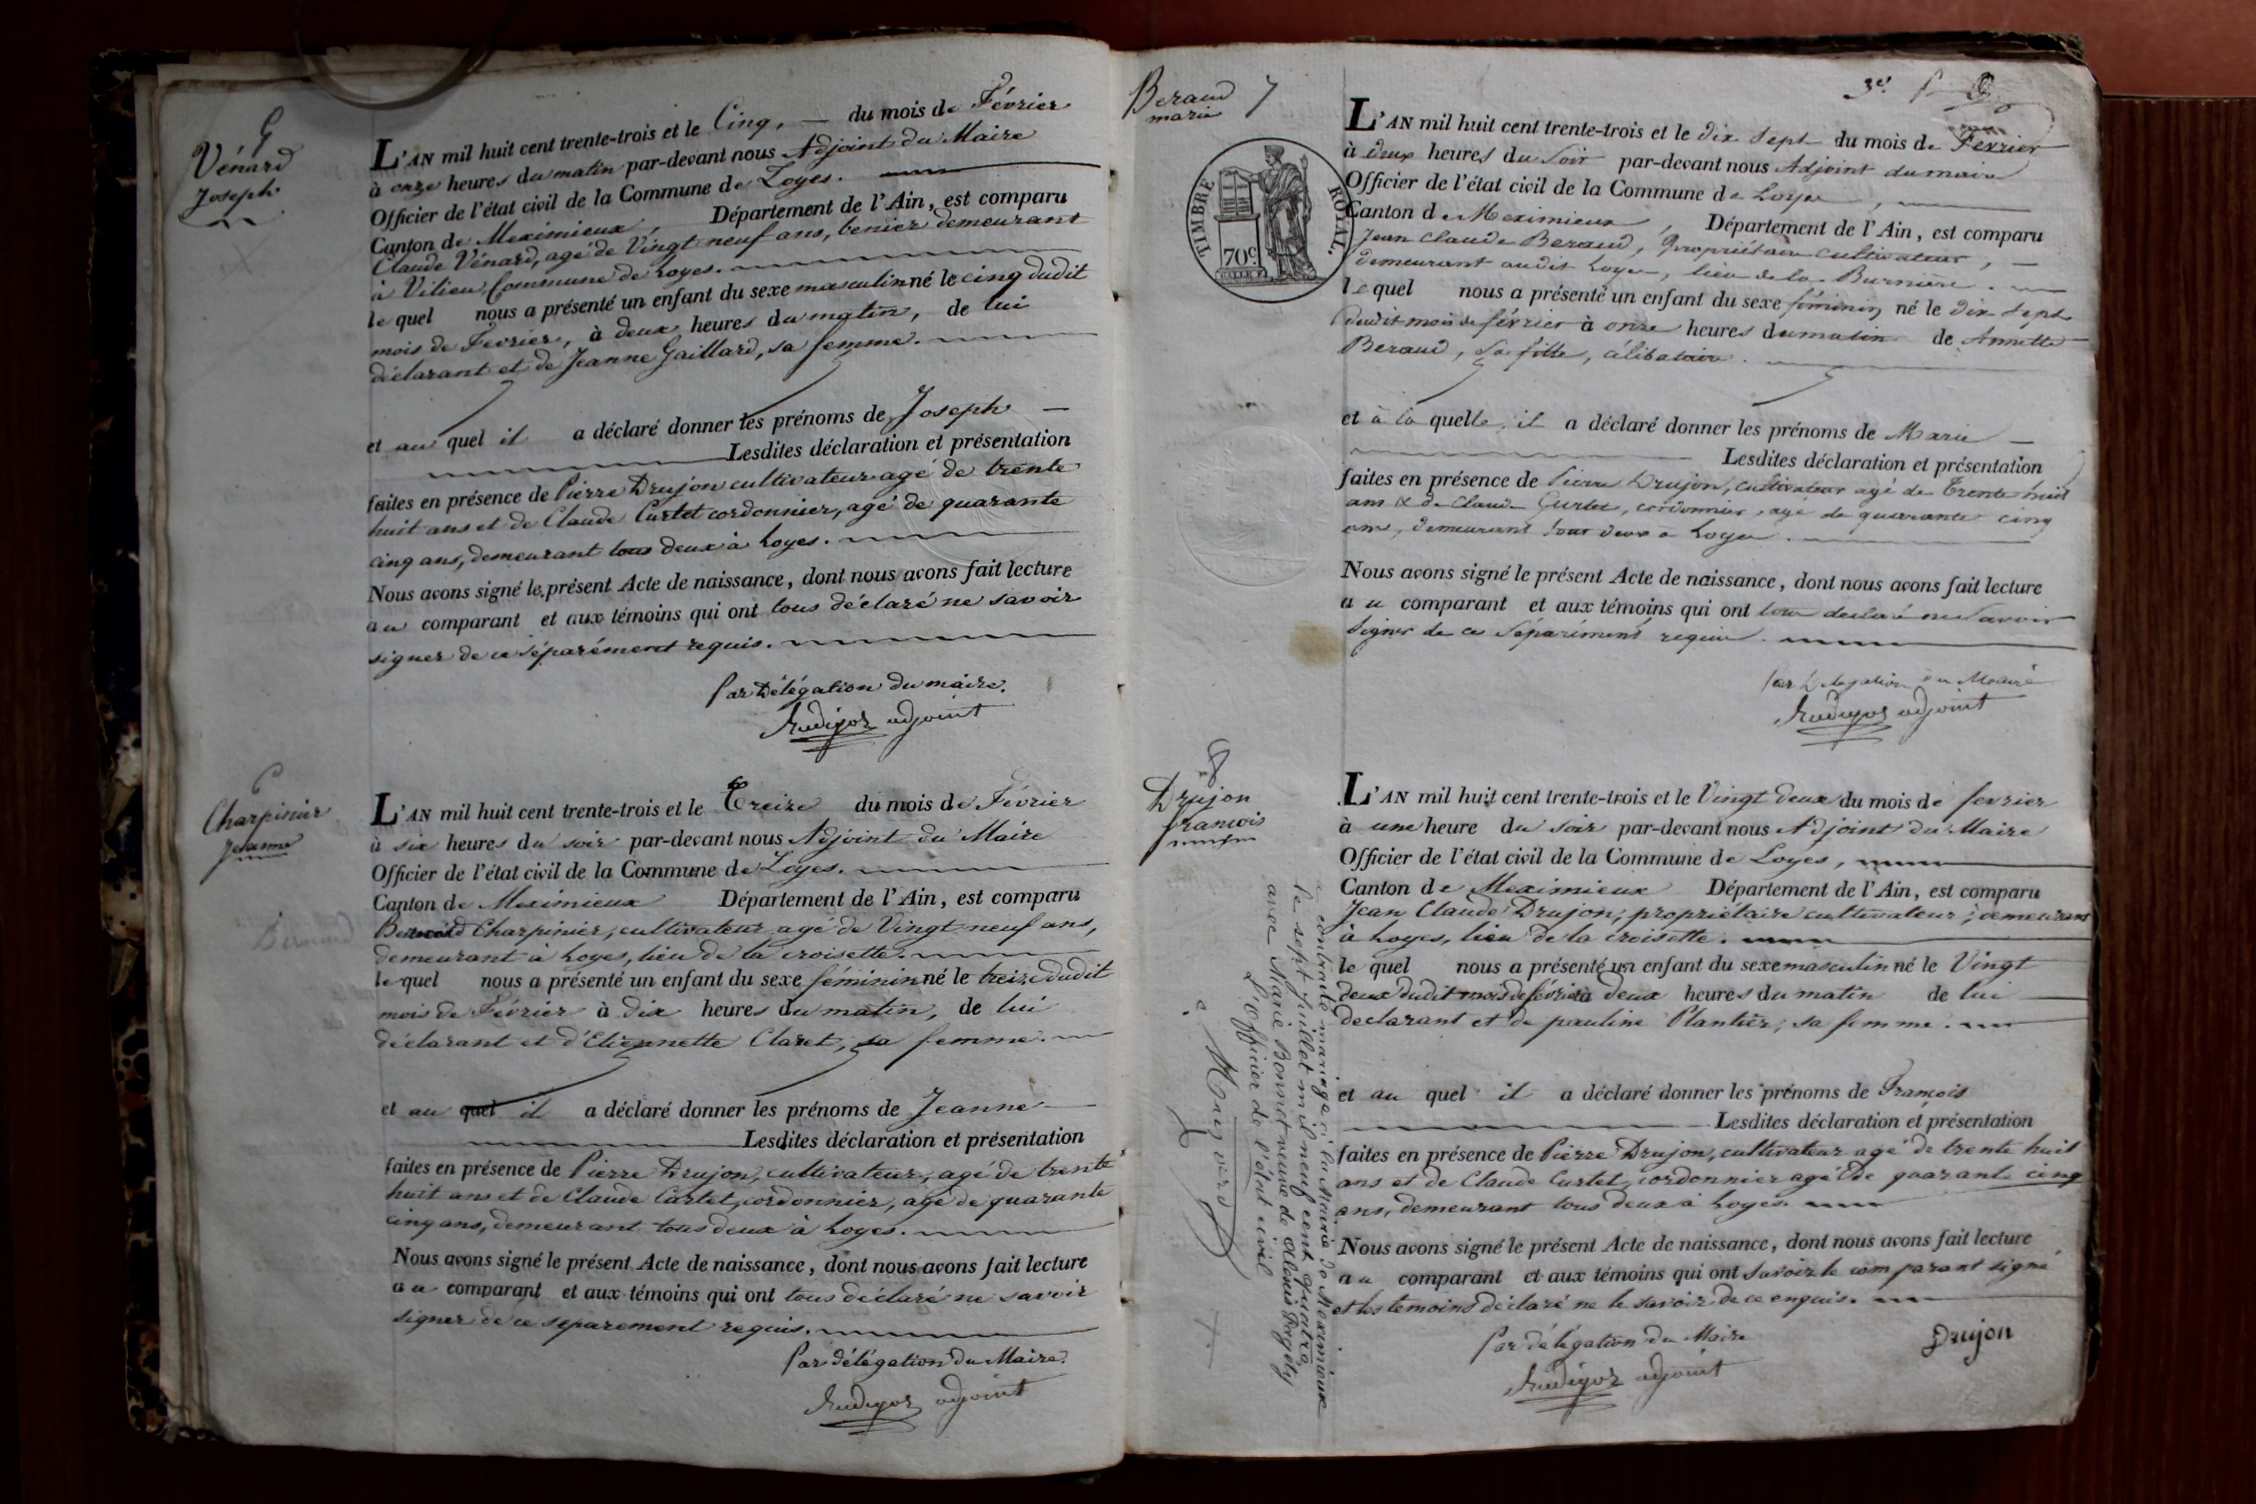 5
Vénard
Joseph
L'AN mil huit cent trente-trois et le Cinq, du mois de Février
à onze heures du matin par-devant nous Adjoint du Maire
Officier de l'état civil de la Commune de Loyes.
Canton de Meximieux, Département de l'Ain, est comparu
Claude Vénard, agé de Vingt neuf ans, demeurant
à Vilieu, Commune de Loyes.
le quel nous a présenté un enfant du sexe masculin né le cinq dudit
mois de Fevrier, à deux heures du matin, de lui
déclarant et de Jeanne Gaillard, sa femme.
et au quel il a déclaré donner les prénoms de Joseph
Lesdites déclaration et présentation
faites en présence de Pierre Drujon cultivateur agé de trente
huit ans et de Claude Curtet cordonnier, agé de quarante
cinq ans, demeurant tous deux à Loyes.
Nous avons signé le présent Acte de naissance, dont nous avons fait lecture
au comparant et aux témoins qui ont tous déclaré ne savoir
signer de ce séparément requis.
Par Délégation du maire.
Rudigoz adjoint
6
Charpinier
Jeanne
Bernard
L'AN mil huit cent trente-trois et le Treize du mois de Février
à six heures du soir par-devant nous Adjoint du Maire
Officier de l'état civil de la Commune de Loyes.
Canton de Meximieux Département de l'Ain, est comparu
Charpinier, cultivateur agé de Vingt neuf ans,
demeurant à Loyes, lieu de la croisette.
le quel nous a présenté un enfant du sexe féminin né le treize dudit
mois de Février à dix heures du matin, de lui
déclarant et d'Etiennette Claret, sa femme.
et au quel il a déclaré donner les prénoms de Jeanne
Lesdites déclaration et présentation
faites en présence de Pierre Drujon, cultivateur, agé de trente
huit ans et de Claude Curtet, cordonnier, agé de quarante
cinq ans, demeurant tous deux à Loyes.
Nous avons signé le présent Acte de naissance, dont nous avons fait lecture
au comparant et aux témoins qui ont tous déclaré ne savoir
signer de ce separement requis.
Par délégation du Maire.
Rudigoz adjoint
3e.
Beraud 7
marie
TIMBRE ROYAL.
70c
L'AN mil huit cent trente-trois et le dix sept du mois de Fevrier
à deux heures du Soir par-devant nous Adjoint du maire
Officier de l'état civil de la Commune de Loyes,
Canton de Meximieux, Département de l'Ain, est comparu
Jean Claude Beraud, Propriétaire cultivateur,
demeurant audit Loyes, lieu de la
le quel nous a présenté un enfant du sexe féminin né le dix sept
dudit mois de février à onze heures du matin de Annette
Beraud, Sa fille, célibataire.
et à la quelle il a déclaré donner les prénoms de Marie
Lesdites déclaration et présentation
faites en présence de Pierre Drujon, cultivateur agé de Trente huit
ans & de Claude Curtet, cordonnier, agé de quarante cinq
ans, demeurant tous deux a Loyes.
Nous avons signé le présent Acte de naissance, dont nous avons fait lecture
au comparant et aux témoins qui ont tous declaré ne Savoir
Signer de ce Séparément requis.
Par Délégation du Maire
Rudigoz adjoint
8
Drujon
françois
a contracté mariage à la Mairie de Meximieux
le sept juillet mil neuf cent quatre
avec Marie Bonnet veuve de
L'officier de l'état civil
L'AN mil huit cent trente-trois et le Vingt deux du mois de fevrier
à une heure du soir par-devant nous Adjoint du Maire
Officier de l'état civil de la Commune de Loyes,
Canton de Meximieux Département de l'Ain, est comparu
Jean Claude Drujon, propriétaire cultivateur, demeurant
à Loyes, lieu de la croisette.
le quel nous a présenté un enfant du sexe masculin né le Vingt
deux dudit mois de février à deux heures du matin de lui
declarant et de pauline Plantier, sa femme.
et au quel il a déclaré donner les prénoms de François
Lesdites déclaration et présentation
faites en présence de Pierre Drujon, cultivateur agé de trente huit
ans et de Claude Curtet, cordonnier agé de quarante cinq
ans, demeurant tous deux à Loyes.
Nous avons signé le présent Acte de naissance, dont nous avons fait lecture
au comparant et aux témoins qui ont savoir le comparant signé
et les temoins déclaré ne le savoir de ce enquis.
Par délégation du Maire
Drujon
Rudigoz adjoint